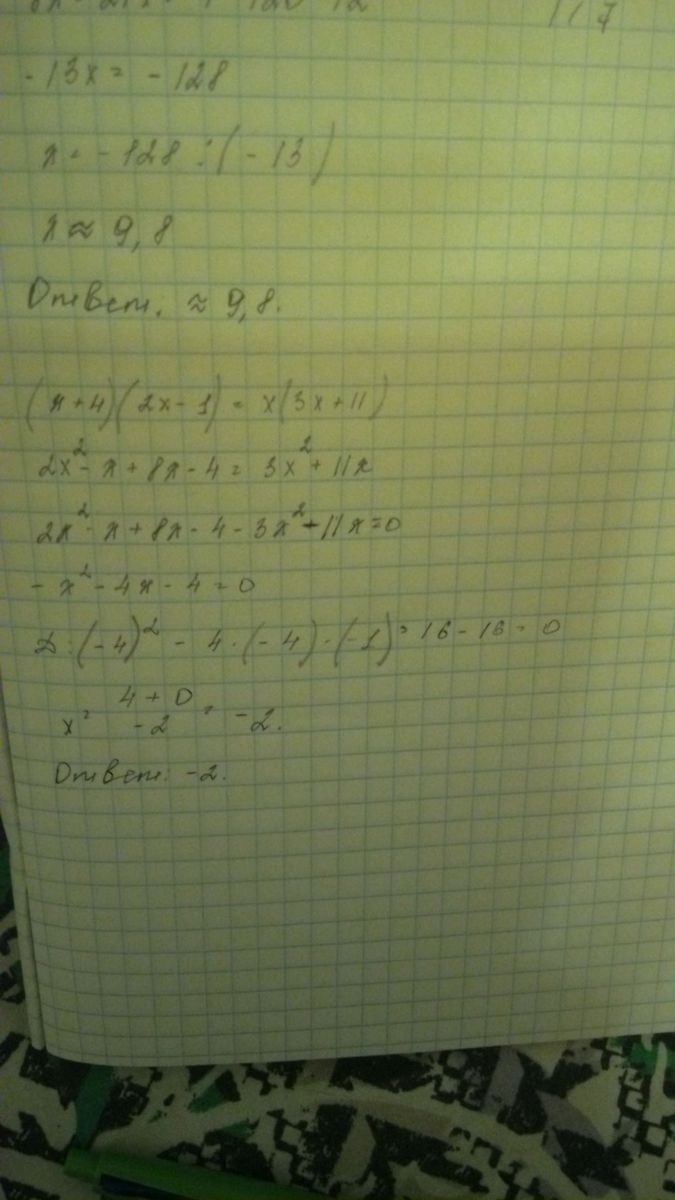 - 13x = - 128
x = - 128 : (- 13)
x ≈ 9,8
Ответ. ≈ 9,8.
(x + 4)(2x - 1) = x(3x + 11)
2x² - x + 8x - 4 = 3x² + 11x
2x² - x + 8x - 4 - 3x² - 11x = 0
- x² - 4x - 4 = 0
D : (-4)² - 4 · (-4) · (-1) = 16 - 16 = 0
x = (4 + 0)/(-2) = -2.
Ответ: -2.